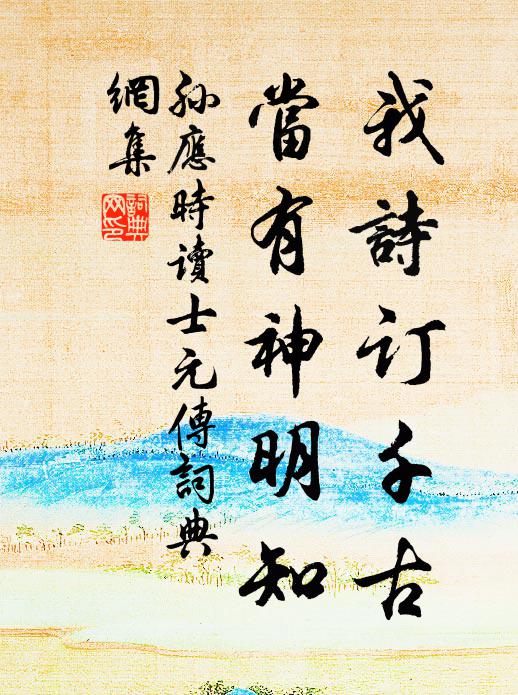 我詩订千古
當有神明知
孙應時讀士元傳詞典
網集
詞典
网印